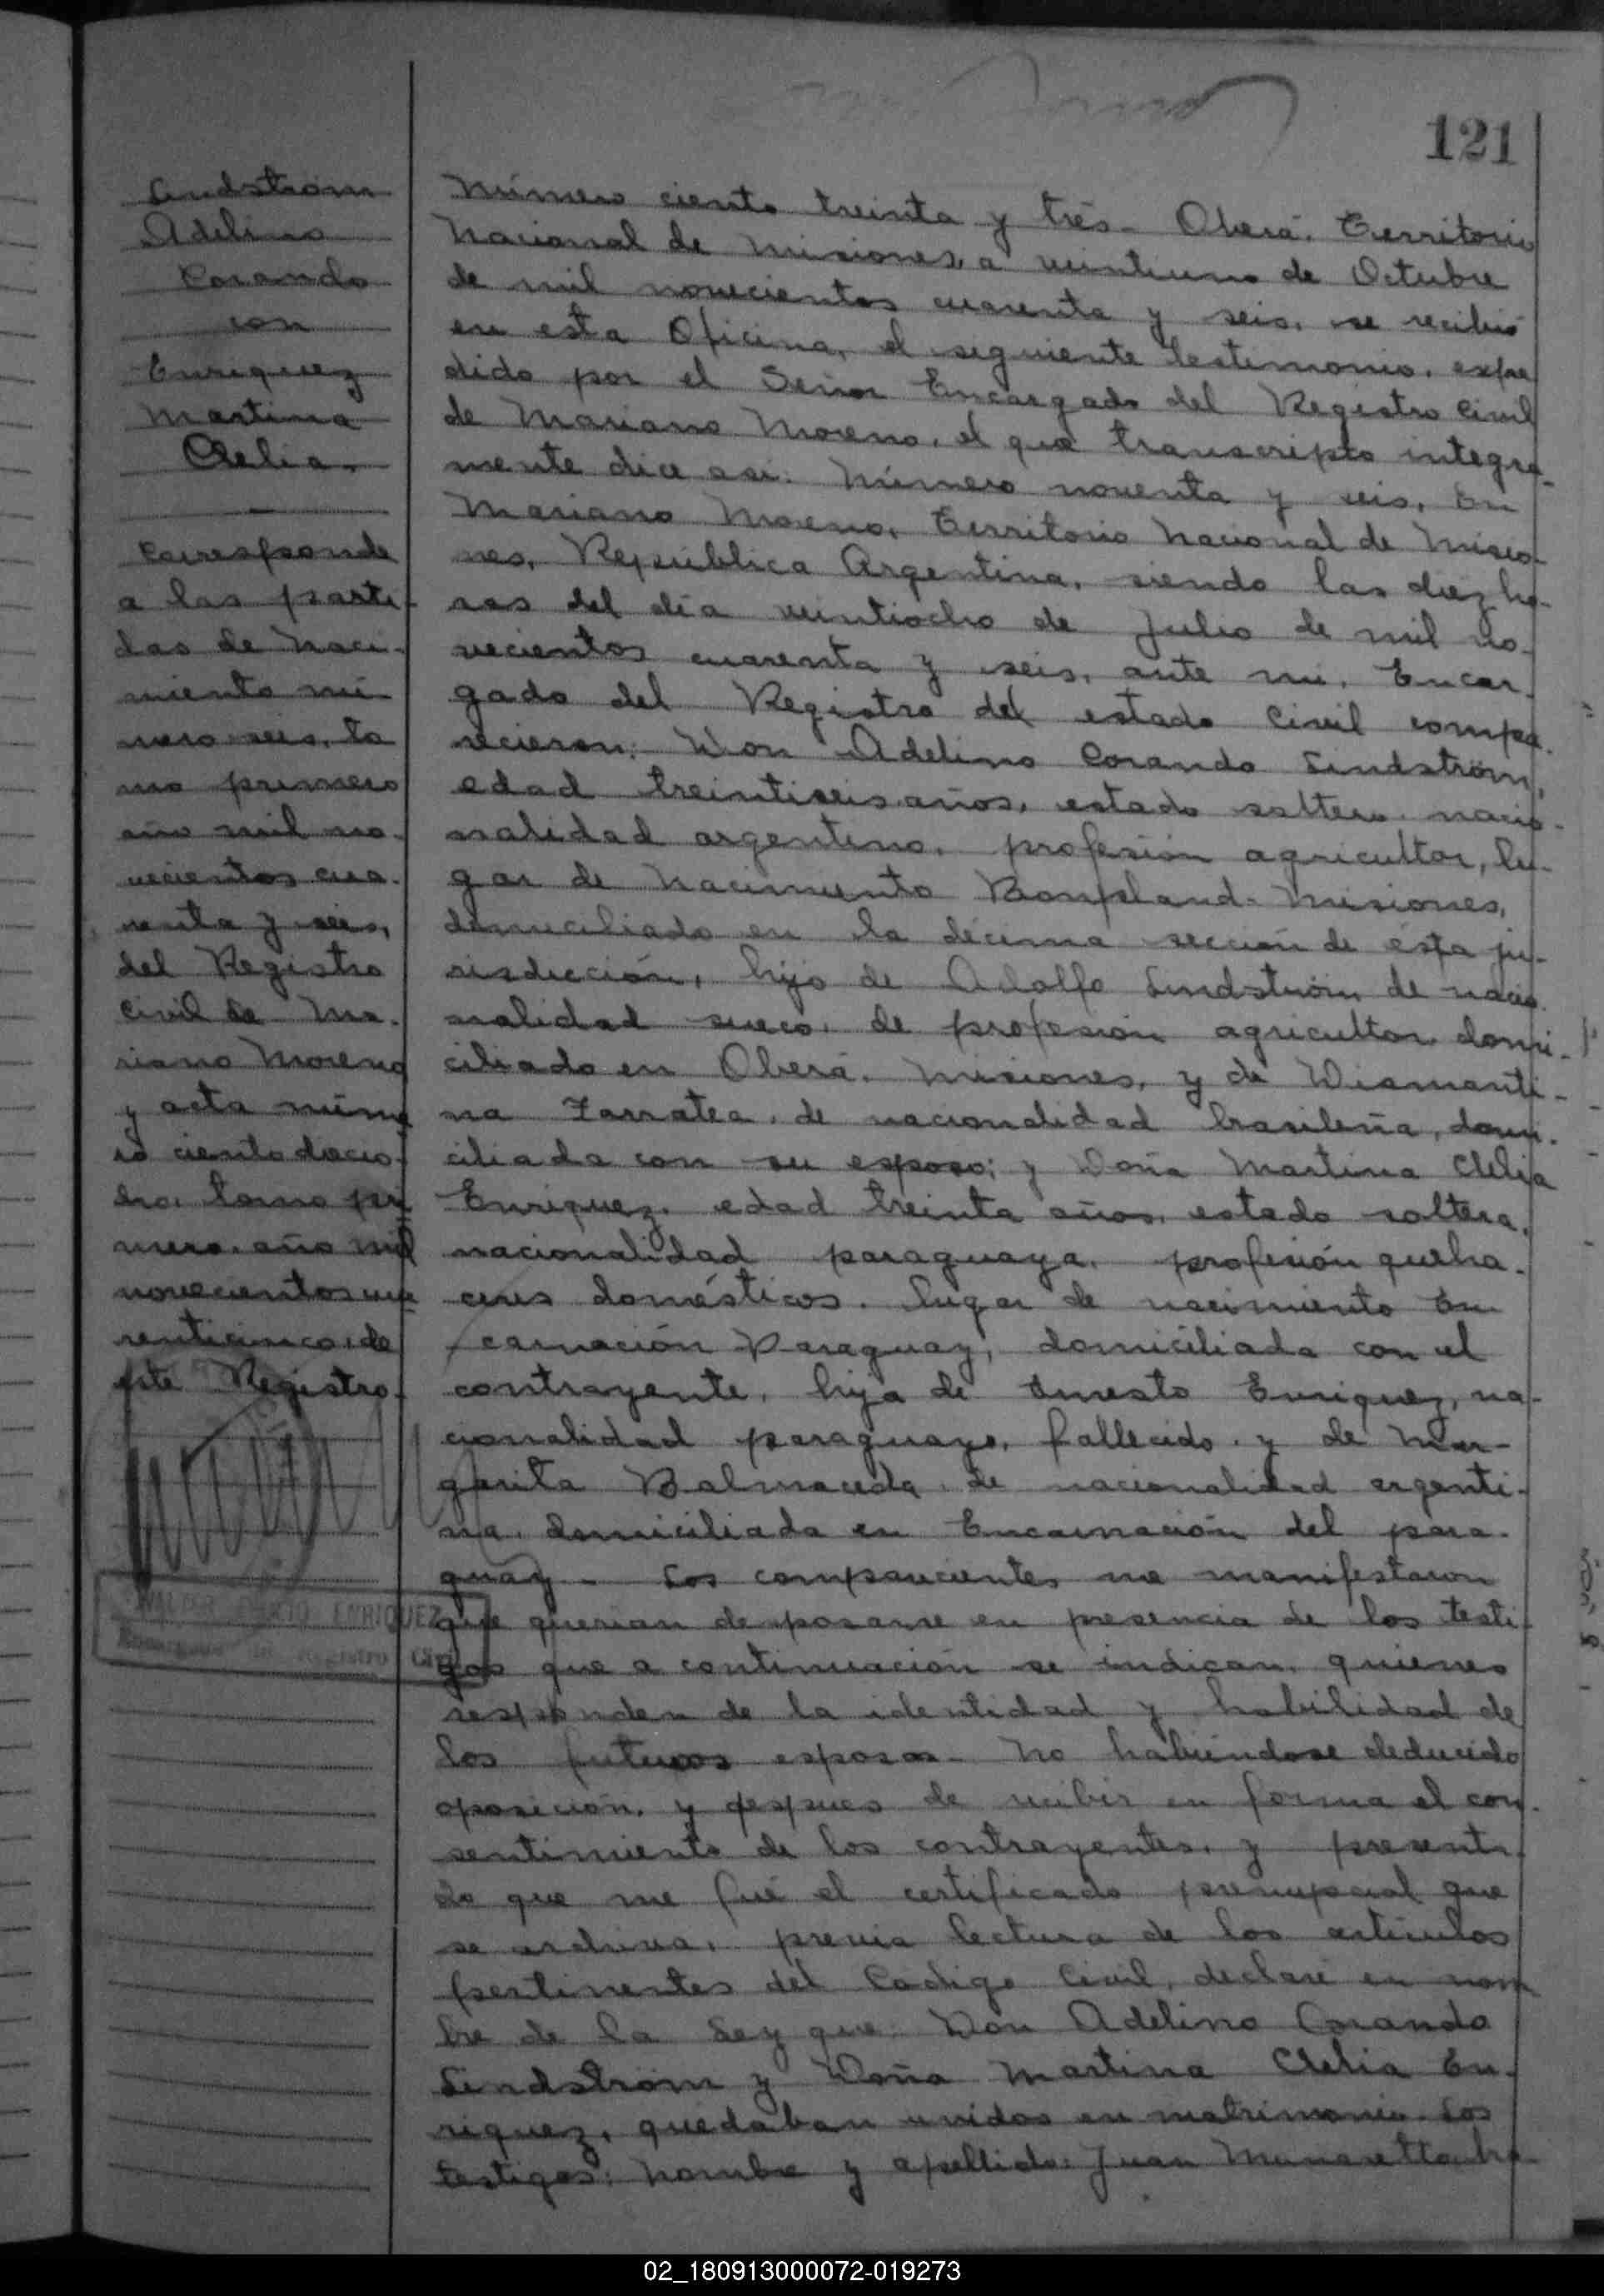 121
Lindström
Adelino
Corando
con
Enriquez
Martina
Clelia.
Corresponde
a las parti-
das de naci-
miento nú
mero seis, to
mo primero
año mil no-
vecientos cua-
renta y seis,
del Registro
Civil de Ma-
riano Moreno
y acta núme
ro ciento diecio-
cho, tomo pri
mero, año mil
novecientos cua
renticinco, de
este Registro.
WALTER ENRIQUEZ
Encargado del Registro Civil
Número ciento treinta y trés.- Oberá, Territorio
Nacional de Misiones, a veintiuno de Octubre
de mil novecientos cuarenta y seis, se recibió
en esta Oficina, el siguiente testimonio, expe
dido por el Señor Encargado del Registro Civil
de Mariano Moreno, el que transcripto integra-
mente dice así: Número noventa y seis. En
Mariano Moreno, Territorio Nacional de Misio-
nes, República Argentina, siendo las diez ho-
ras del día veintiocho de Julio de mil no-
vecientos cuarenta y seis, ante mi, Encar-
gado del Registro del estado Civil compa-
recieron: Don Adelino Corando Lindström,
edad treintiseis años, estado soltero, nacio-
nalidad argentino, profesión agricultor, lu-
gar de nacimiento Bonpland- Misiones,
domiciliado en la décima sección de ésta ju-
risdicción, hijo de Adolfo Lindström, de nacio-
nalidad sueco, de profesión agricultor, domi-
ciliado en Oberá, Misiones, y de Diamanti-
na Zarratea, de nacionalidad brasileña, domi-
ciliada con su esposo; y Doña Martina Clelia
Enriquez, edad treinta años, estado soltera,
nacionalidad paraguaya, profesión queha-
ceres domésticos, lugar de nacimiento En
carnación Paraguay, domiciliada con el
contrayente, hija de Ernesto Enriquez, na-
cionalidad paraguayo, fallecido, y de Mar-
garita Balmaceda, de nacionalidad argenti-
na, domiciliada en Encarnación del para-
guay.- Los comparecientes me manifestaron
que querian desposarse en presencia de los testi-
gos que a continuación se indican, quienes
responden de la identidad y habilidad de
los futuros esposos.- No habiéndose deducido
oposición, y despues de recibir en forma el con-
sentimiento de los contrayentes, y presenta-
do que me fué el certificado prenupcial que
se archiva, previa lectura de los artículos
pertinentes del Codigo Civil, declaré en nom
bre de la Ley que: Don Adelino Corando
Lindström y Doña Martina Clelia En-
riquez, quedaban unidos en matrimonio. Los
testigos: Nombre y apellido: Juan
02_180913000072-019273